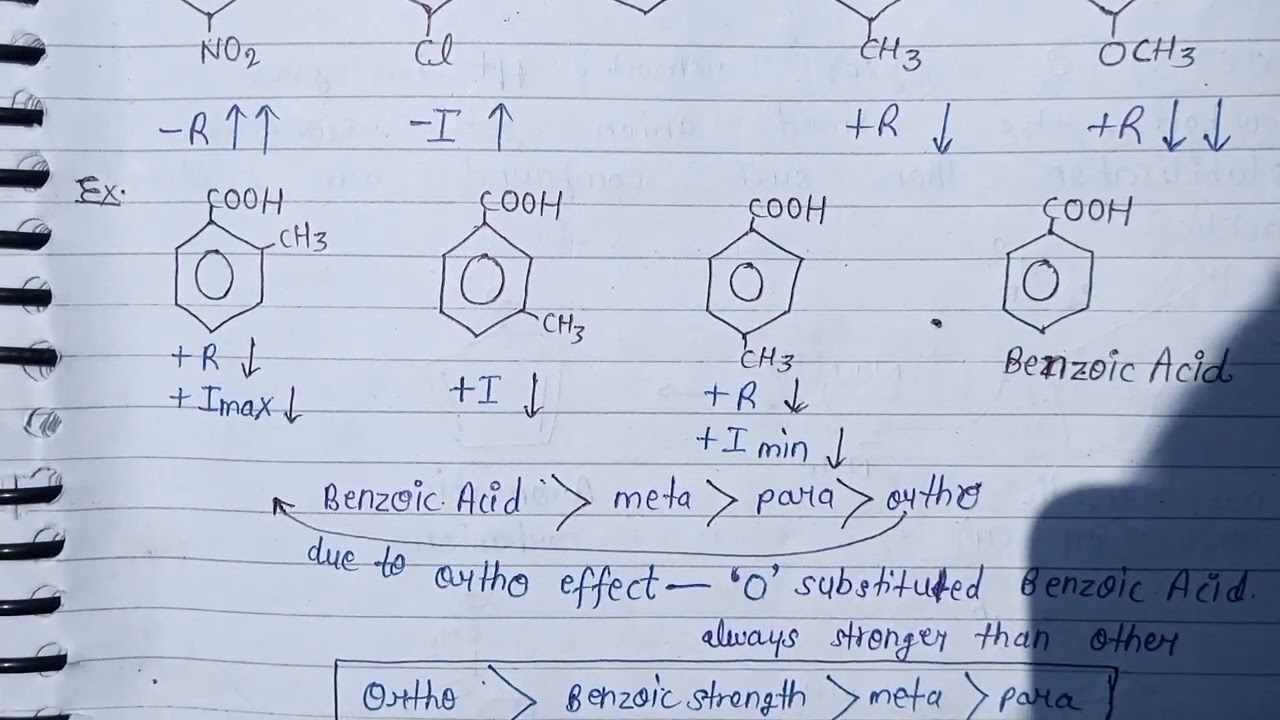 NO2 Cl CH3 OCH3
-R↑↑ -I↑ +R↓ +R↓↓
Ex. COOH COOH COOH COOH
CH3
CH3
CH3
+R↓ +I↓ +R↓ Benzoic Acid
+Imax↓ +I min↓
Benzoic Acid > meta > para > ortho
due to ortho effect — 'O' substituted Benzoic Acid.
always stronger than other
Ortho > Benzoic strength > meta > para